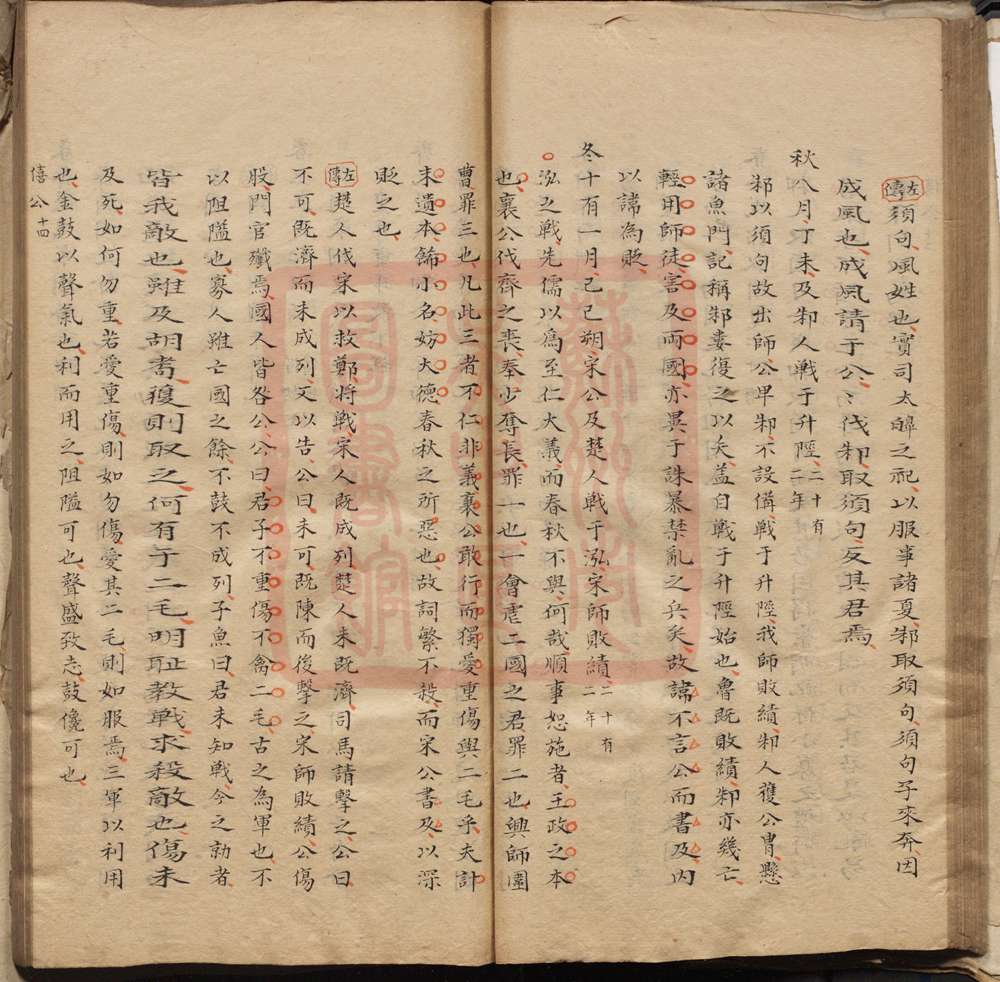 左傳須句風姓也實司太皥之祀以服事諸夏邾取須句須句子來奔因
成風也成風請于公公伐邾取須句反其君焉
秋八月丁未及邾人戰于升陘二十有二年
邾以須句故出師公卑邾不設備戰于升陘我師敗績邾人獲公胄懸
諸魚門記稱邾婁復之以矢蓋自戰于升陘始也魯既敗績邾亦幾亡
輕用師徒害及兩國亦異于誅暴禁亂之兵矣故諱不言公而書及內
以諱為貶
冬十有一月己巳朔宋公及楚人戰于泓宋師敗績二十有二年
泓之戰先儒以為至仁大義而春秋不與何哉順事恕施者王政之本
也襄公伐齊之喪奉少奪長罪一也一會虐二國之君罪二也興師圍
曹罪三也凡此三者不仁非義襄公敢行而獨愛重傷與二毛乎夫計
末遺本飾小名妨大德春秋之所惡也故詞繁不殺而宋公書及以深
貶之也
左傳楚人伐宋以救鄭將戰宋人既成列楚人未既濟司馬請擊之公曰
不可既濟而未成列又以告公曰未可既陳而後擊之宋師敗績公傷
股門官殲焉國人皆咎公公曰君子不重傷不禽二毛古之為軍也不
以阻隘也寡人雖亡國之餘不鼓不成列子魚曰君未知戰今之勍者
皆我敵也雖及胡耉獲則取之何有于二毛明耻教戰求殺敵也傷未
及死如何勿重若愛重傷則如勿傷愛其二毛則如服焉三軍以利用
也金鼓以聲氣也利而用之阻隘可也聲盛致志鼓儳可也
僖公 十四